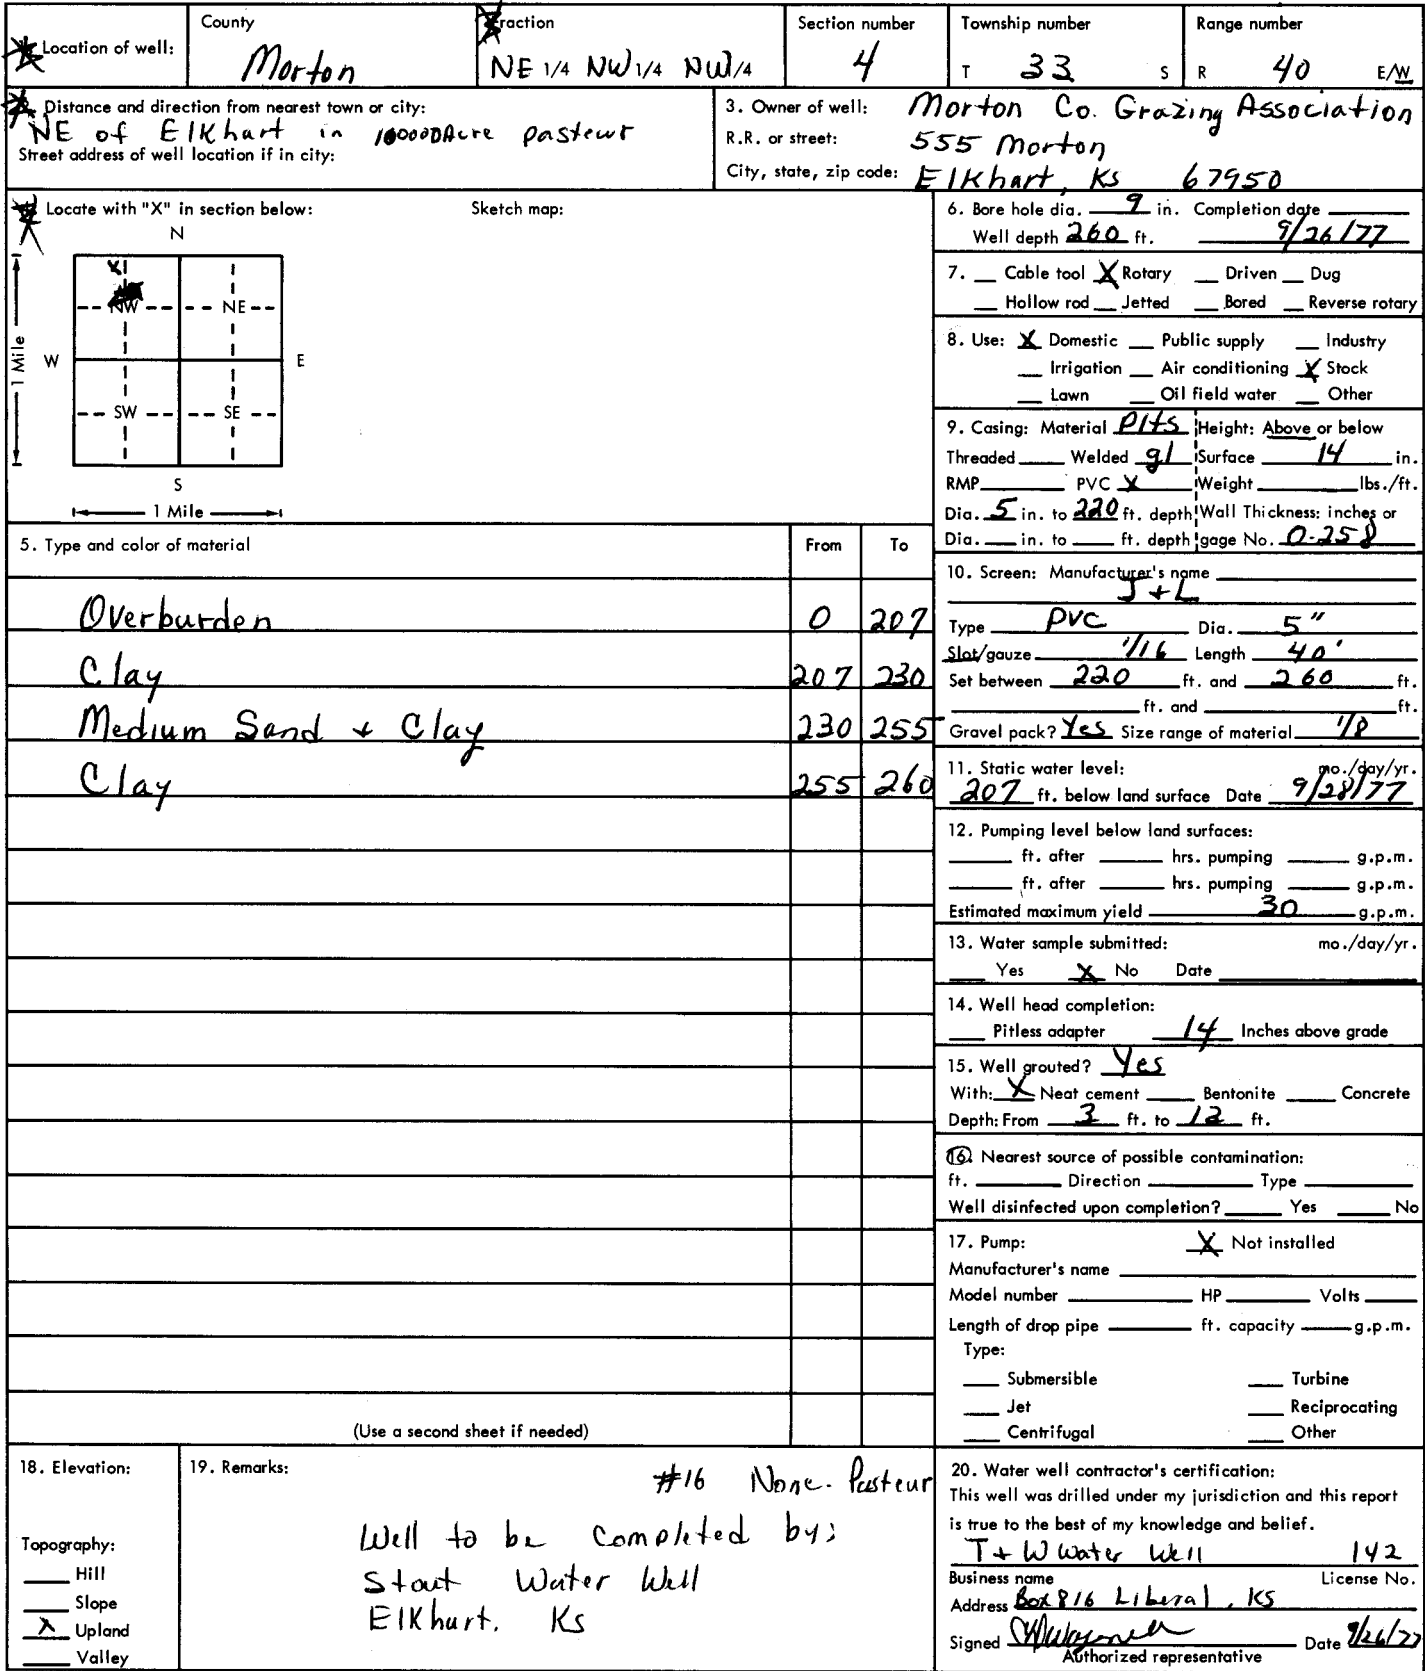 Location of well:
County
Morton
Fraction
NE 1/4 NW 1/4 NW 1/4
Section number
4
Township number
T 33 S
Range number
R 40 E/W
Distance and direction from nearest town or city:
NE of Elkhart in 100000Acre pasteur
Street address of well location if in city:
3. Owner of well: Morton Co. Grazing Association
R.R. or street: 555 Morton
City, state, zip code: Elkhart, Ks 67950
Locate with "X" in section below: Sketch map:
N
X
NW NE
1 Mile
W E
SW SE
S
1 Mile
5. Type and color of material From To
Overburden 0 207
Clay 207 230
Medium Sand + Clay 230 255
Clay 255 260
(Use a second sheet if needed)
6. Bore hole dia. 9 in. Completion date
Well depth 260 ft. 9/26/77
7. Cable tool X Rotary Driven Dug
Hollow rod Jetted Bored Reverse rotary
8. Use: X Domestic Public supply Industry
Irrigation Air conditioning X Stock
Lawn Oil field water Other
9. Casing: Material Plts Height: Above or below
Threaded Welded gl Surface 14 in.
RMP PVC X Weight lbs./ft.
Dia. 5 in. to 220 ft. depth Wall Thickness: inches or
Dia. in. to ft. depth gage No. 0-258
10. Screen: Manufacturer's name
J + L
Type PVC Dia. 5"
Slot/gauze 1/16 Length 40'
Set between 220 ft. and 260 ft.
ft. and ft.
Gravel pack? Yes Size range of material 1/8
11. Static water level: mo./day/yr.
207 ft. below land surface Date 9/28/77
12. Pumping level below land surfaces:
ft. after hrs. pumping g.p.m.
ft. after hrs. pumping g.p.m.
Estimated maximum yield 30 g.p.m.
13. Water sample submitted: mo./day/yr.
Yes X No Date
14. Well head completion:
Pitless adapter 14 Inches above grade
15. Well grouted? Yes
With: X Neat cement Bentonite Concrete
Depth: From ft. to 12 ft.
16. Nearest source of possible contamination:
ft. Direction Type
Well disinfected upon completion? Yes No
17. Pump: X Not installed
Manufacturer's name
Model number HP Volts
Length of drop pipe ft. capacity g.p.m.
Type:
Submersible Turbine
Jet Reciprocating
Centrifugal Other
18. Elevation:
Topography:
Hill
Slope
X Upland
Valley
19. Remarks:
#16 None. Pasteur
Well to be Completed by;
Stout Water Well
Elkhart. Ks
20. Water well contractor's certification:
This well was drilled under my jurisdiction and this report
is true to the best of my knowledge and belief.
T + W Water Well 142
Business name License No.
Address Box 816 Liberal, KS
Signed Date 9/26/77
Authorized representative